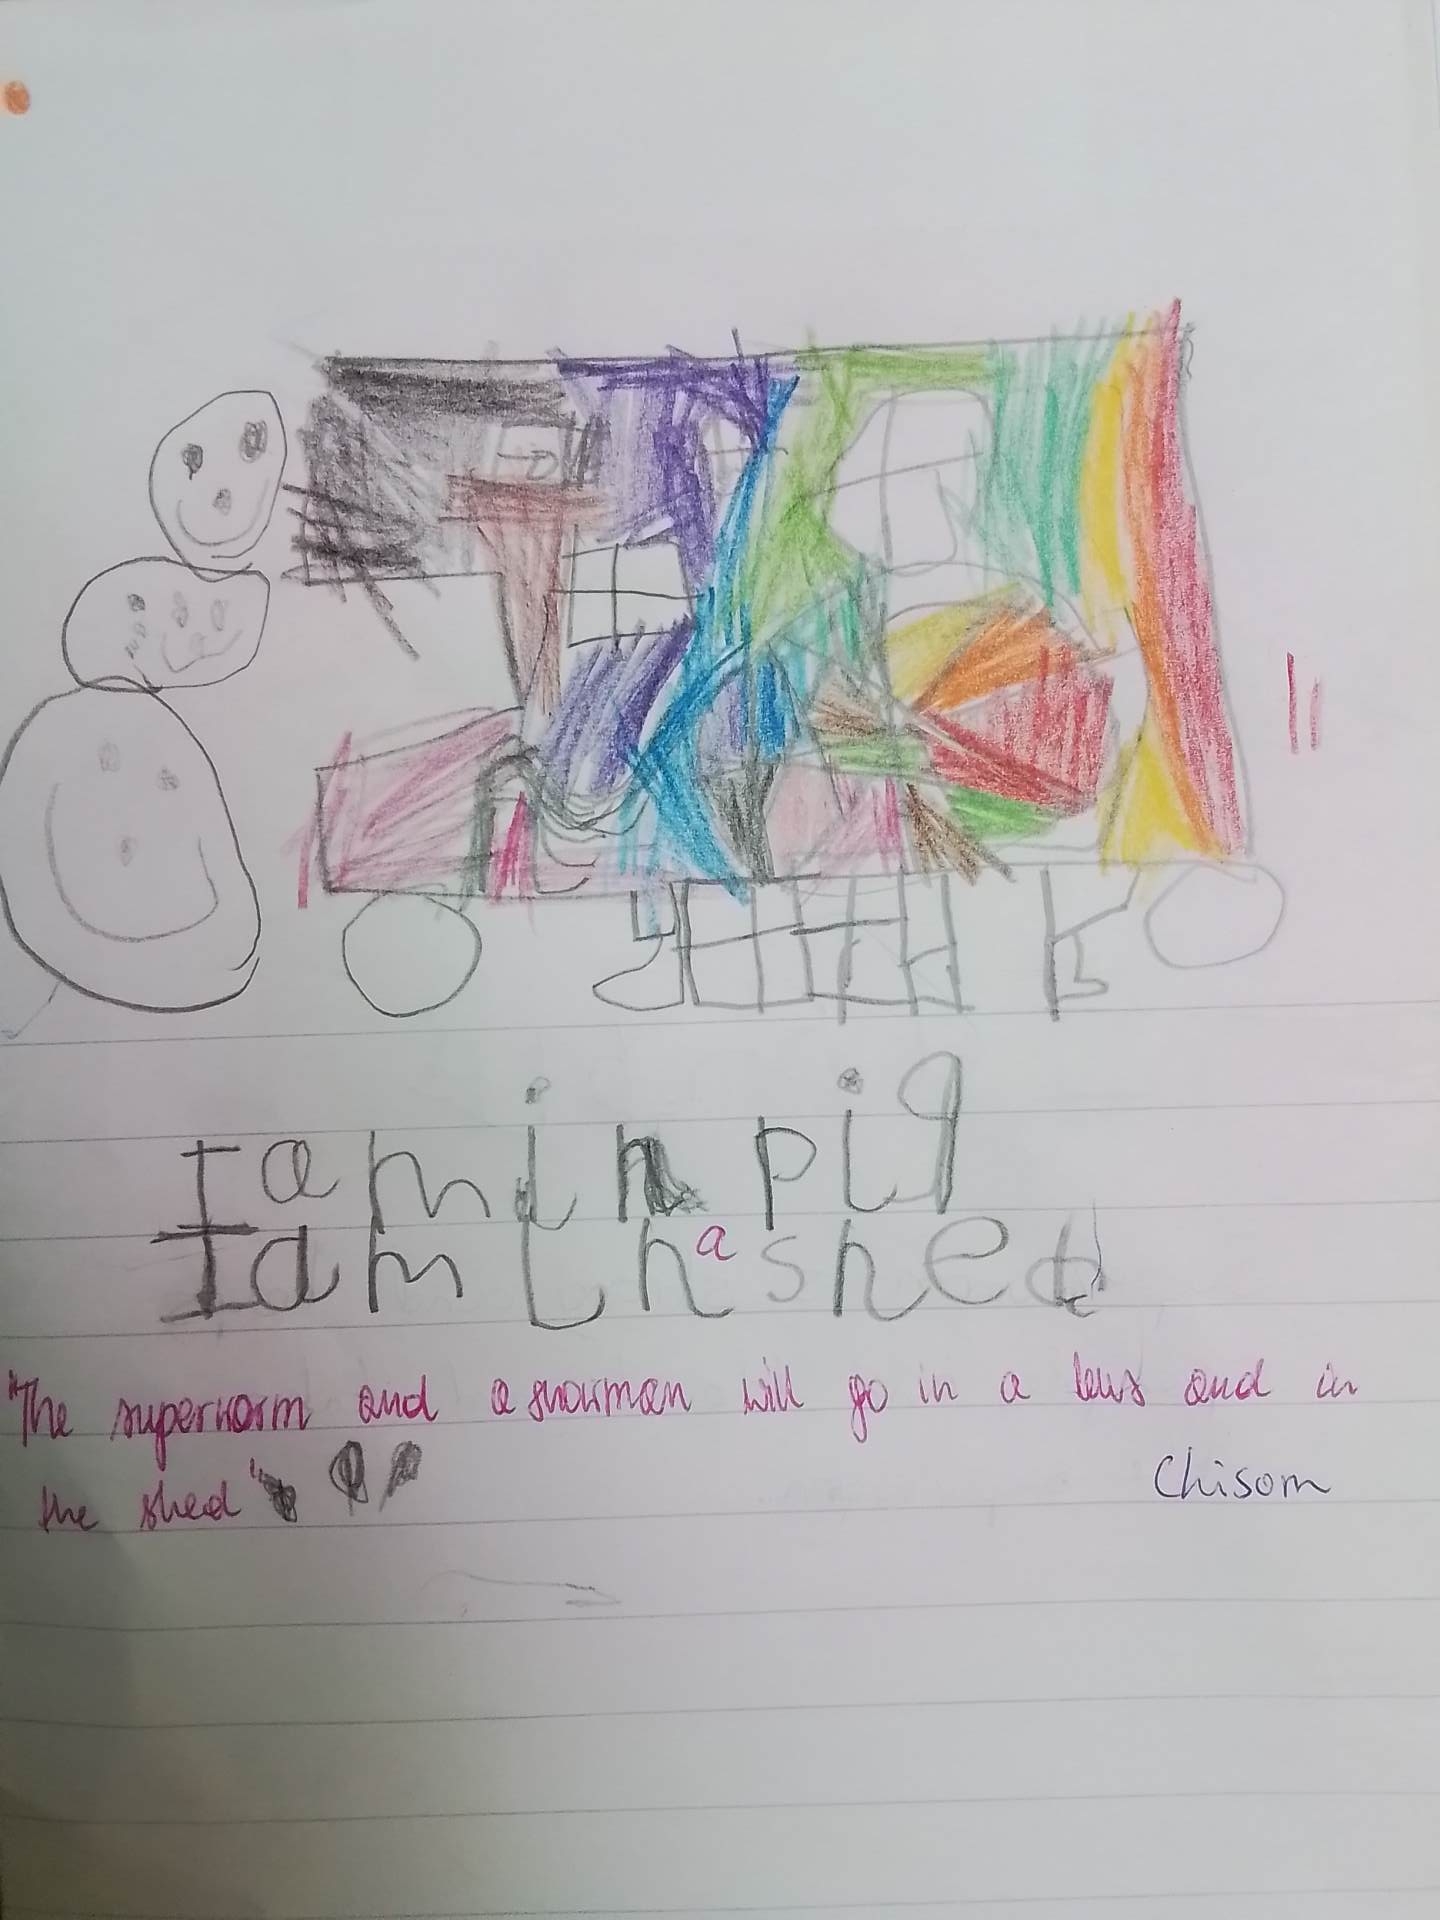 I am in pig
I am in a shed
"The superworm and a snowman will go in a bus and in
the shed"
Chisom